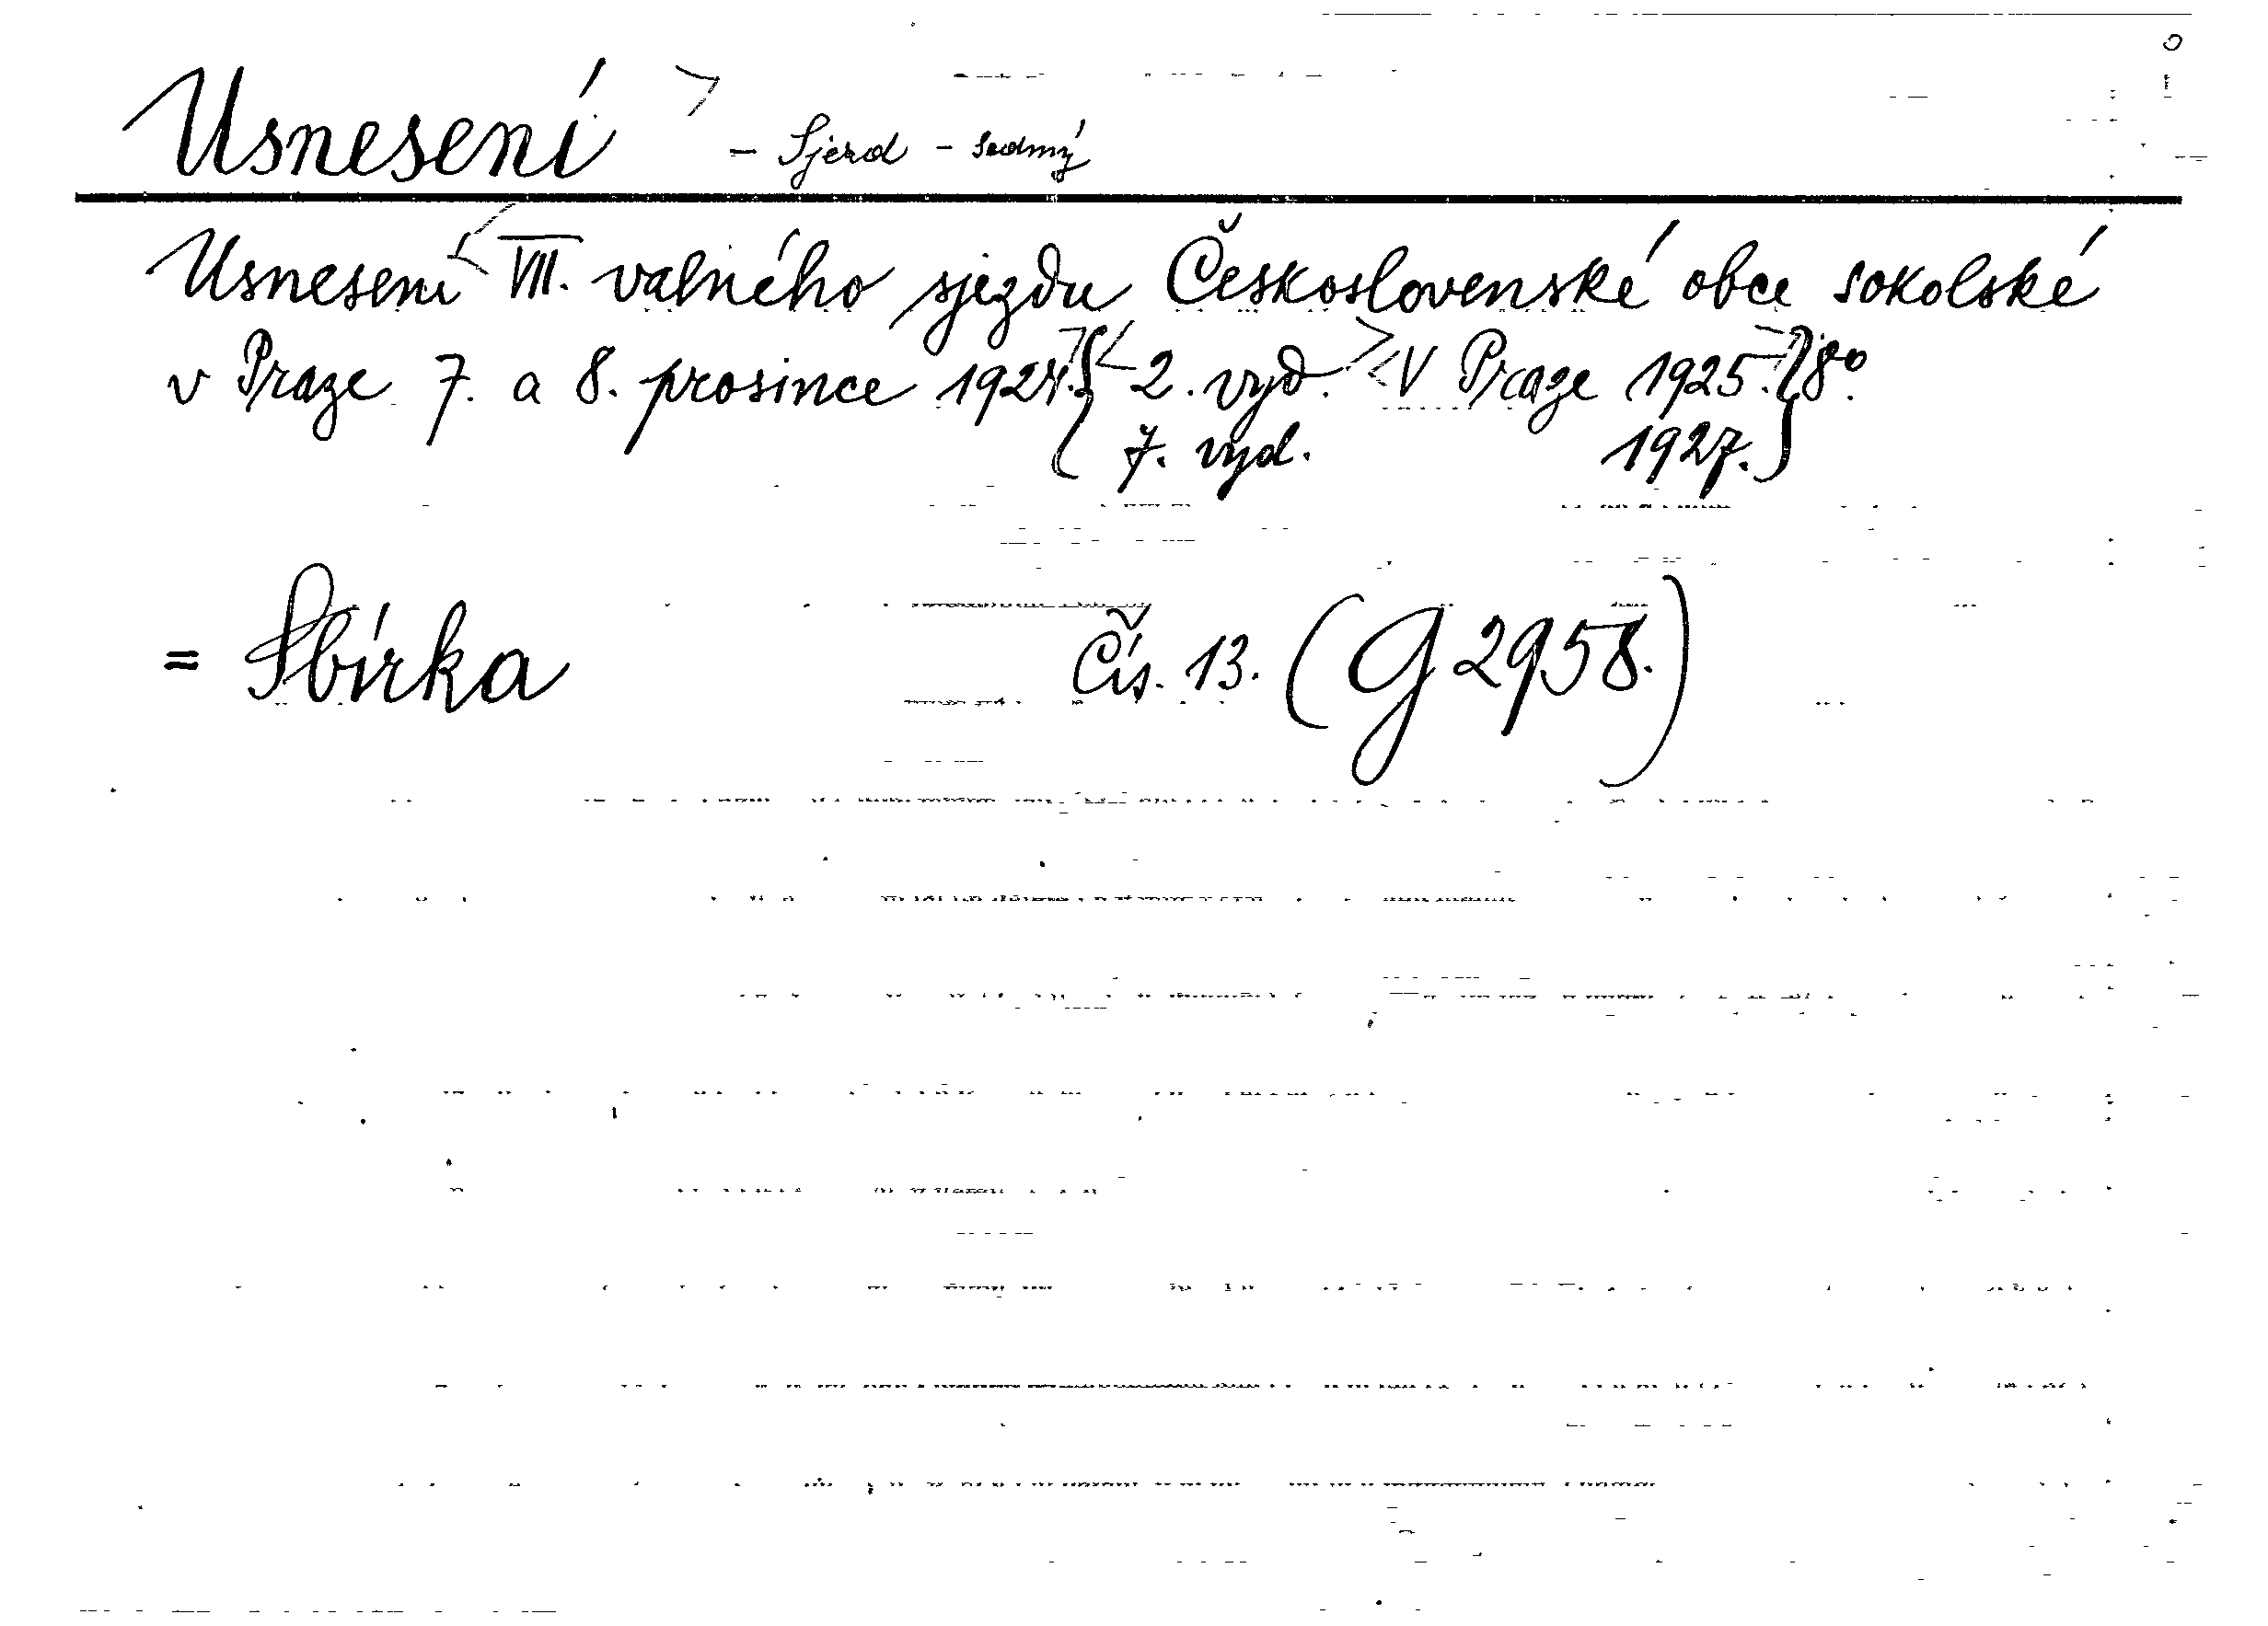 Usnesení - Sjezd - sedmý
Usnesení VII. valného sjezdu Československé obce sokolské
v Praze 7. a 8. prosince 1924. { 2. vyd. V Praze 1925. } 8°.
7. vyd. 1927.
= Sbírka Čís. 13. (G 2958.)